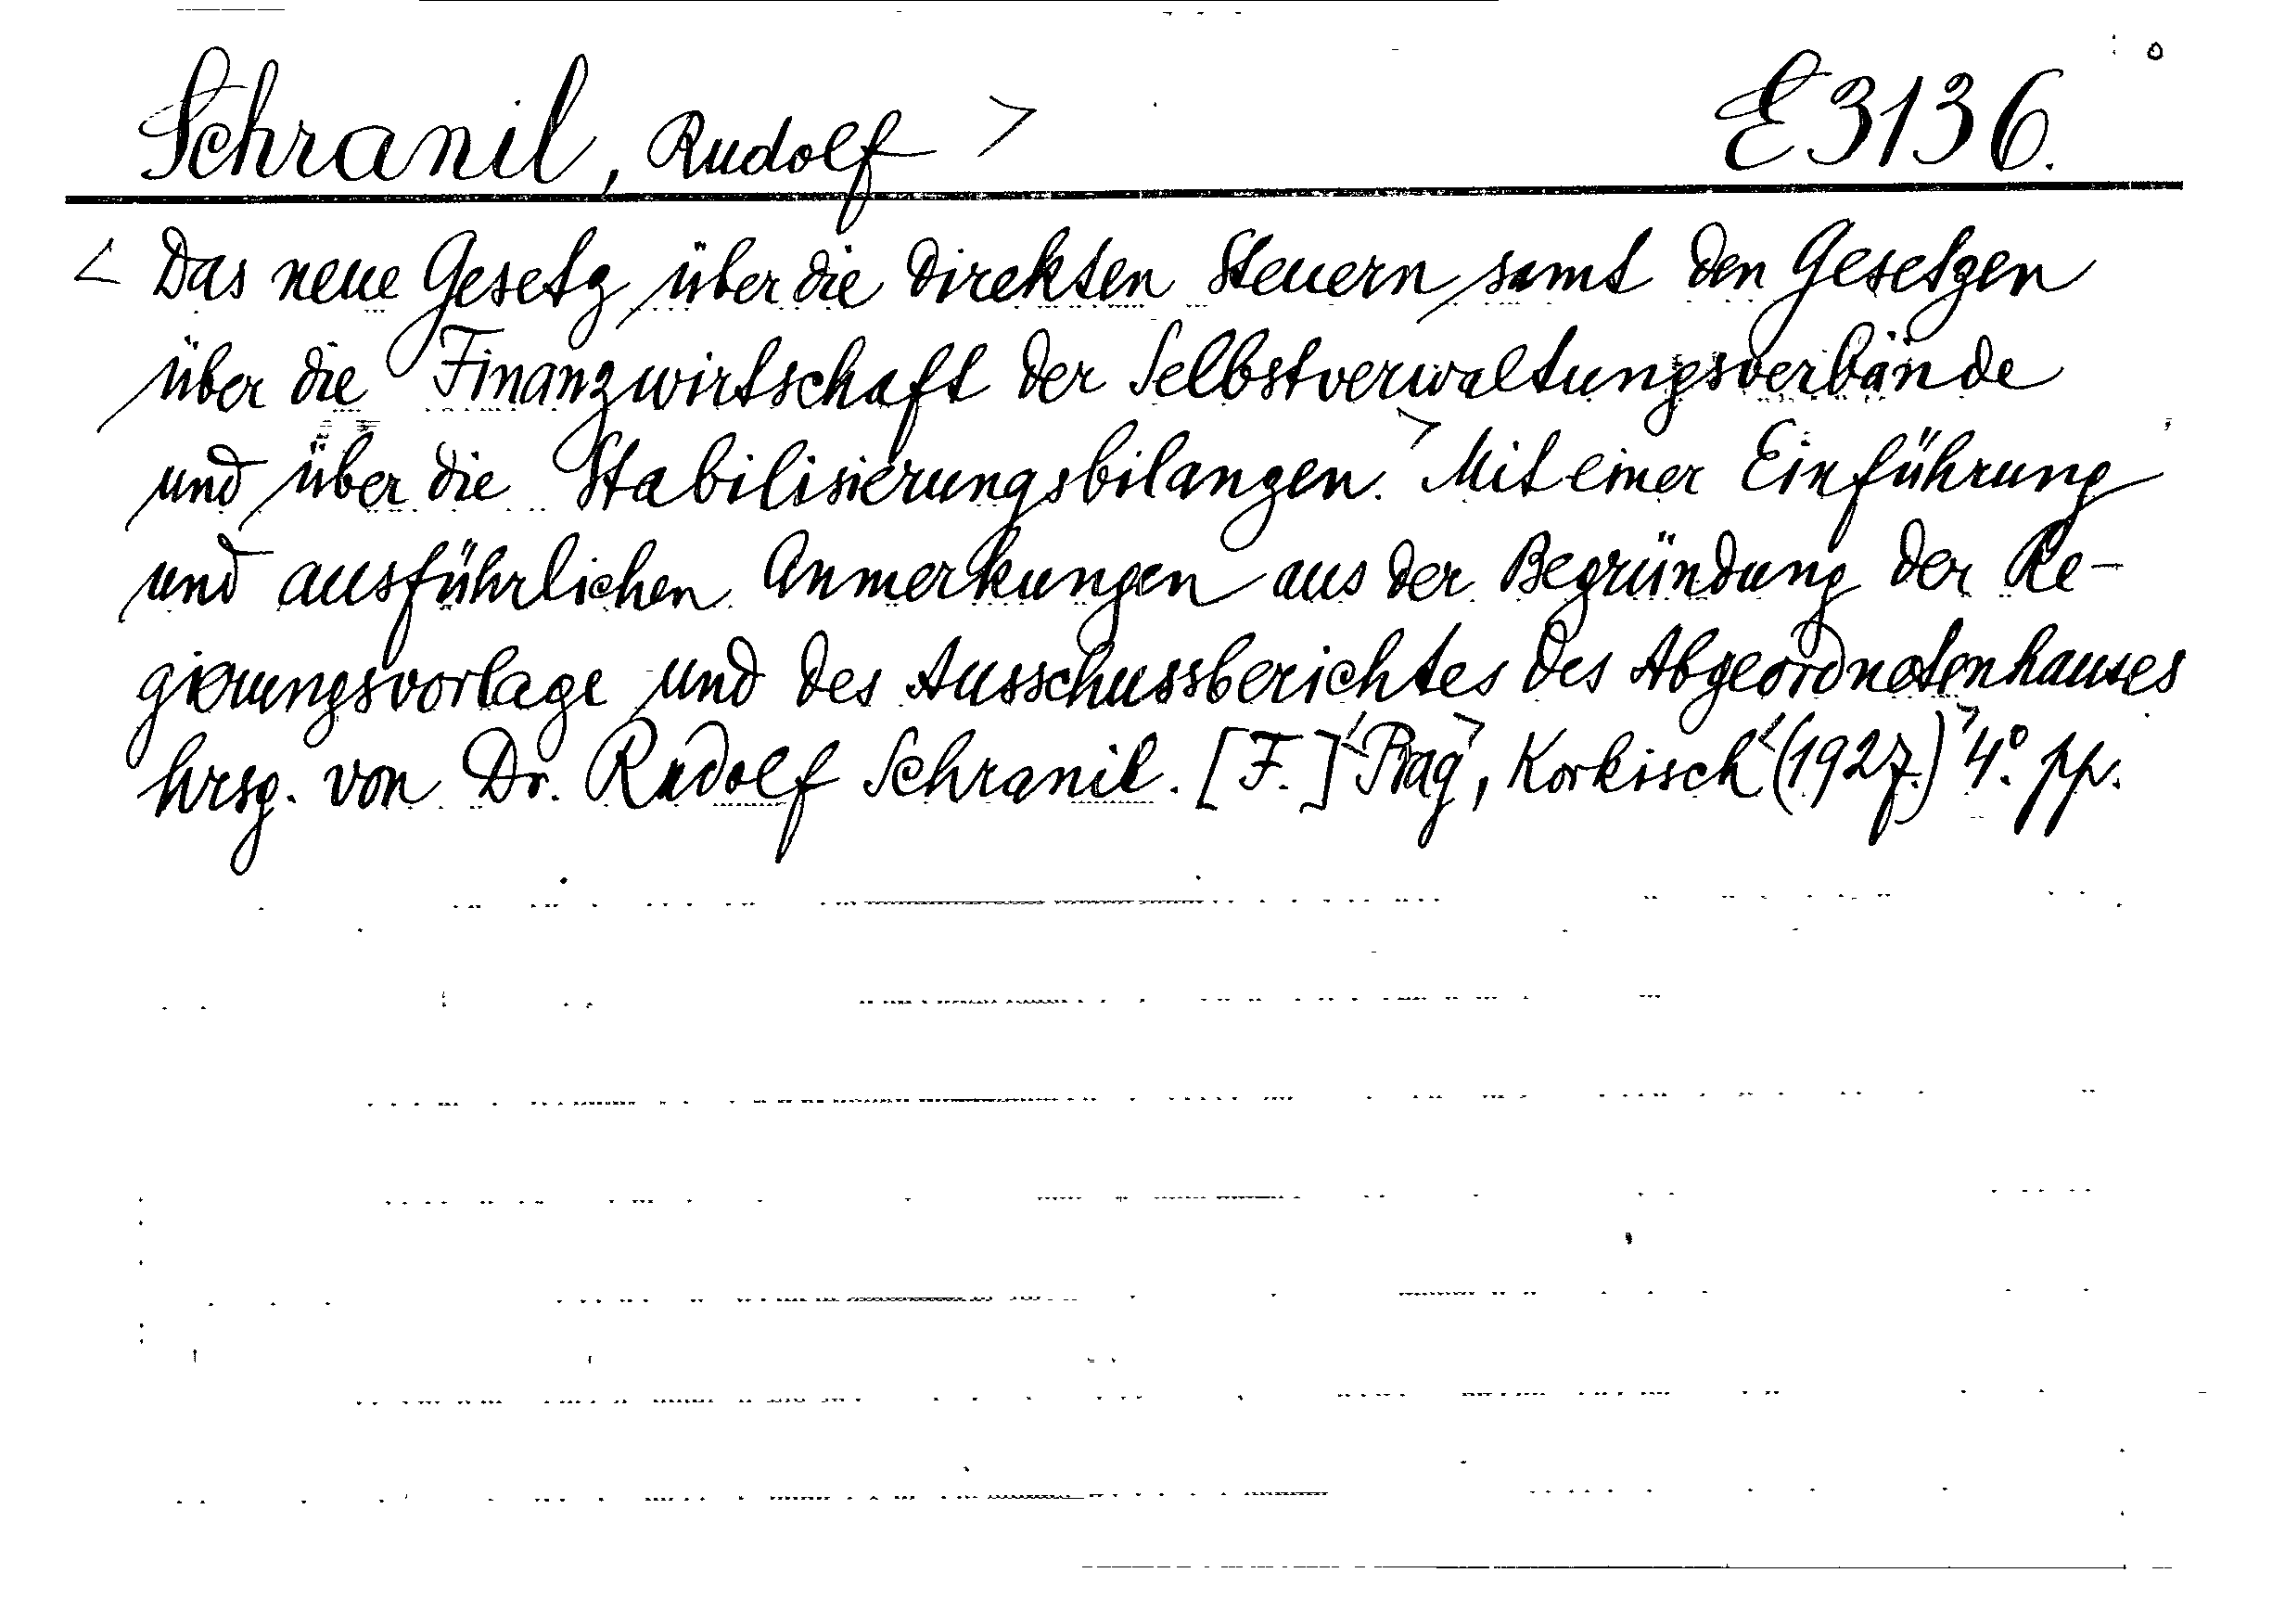 Schranil, Rudolf > E3136.
< Das neue Gesetz über die direkten Steuern samt den Gesetzen
über die Finanzwirtschaft der Selbstverwaltungsverbände
und über die Stabilisierungsbilanzen.> Mit einer Einführung
und ausführlichen Anmerkungen aus der Begründung der Re-
gierungsvorlage und des Ausschussberichtes des Abgeordnetenhauses
hrsg. von Dr. Rudolf Schranil. [F.] <Prag>, Korkisch <(1927.)> 4° pp.